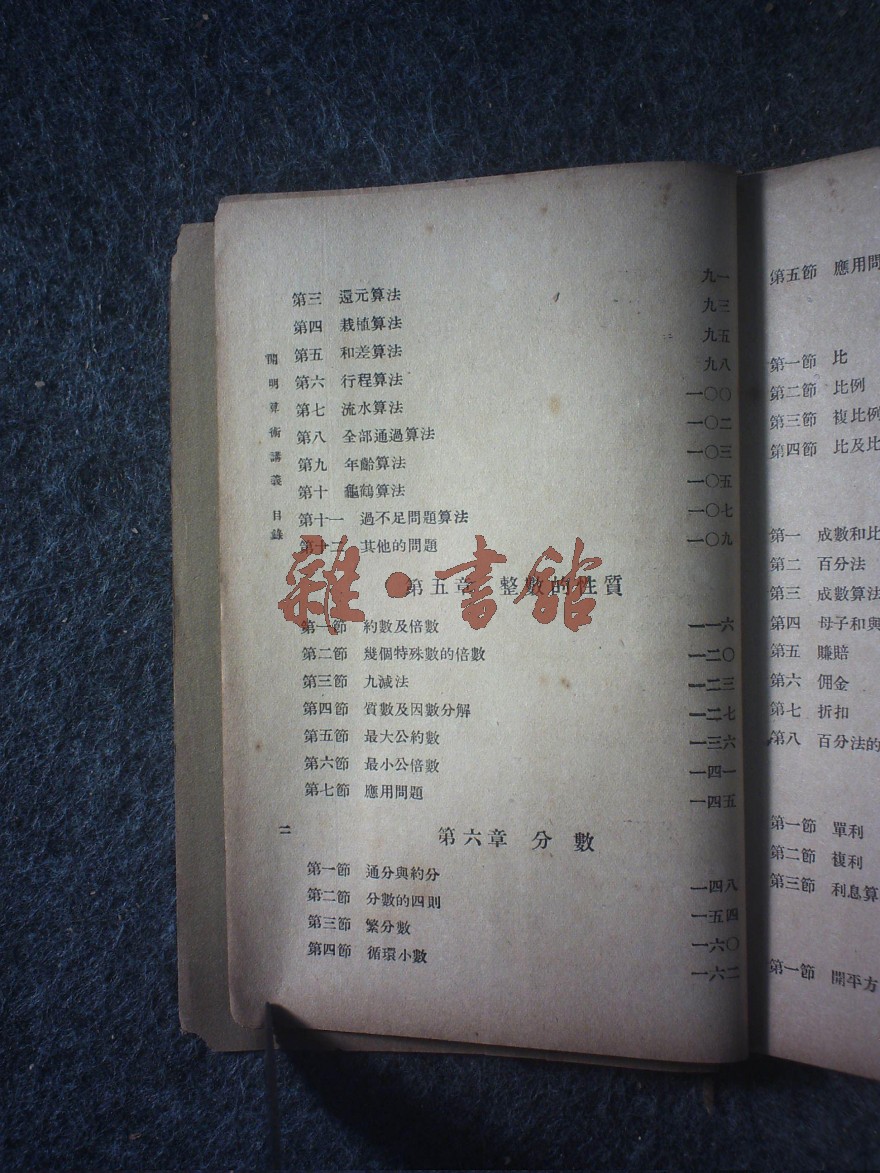 開明算術講義 目錄
第三 還元算法 九一
第四 栽植算法 九三
第五 和差算法 九五
第六 行程算法 九八
第七 流水算法 一〇〇
第八 全部通過算法 一〇二
第九 年齡算法 一〇三
第十 龜鶴算法 一〇五
第十一 過不足問題算法 一〇七
第十二 其他的問題 一〇九
雜·書館
第五章 整數的性質
第一節 約數及倍數 一一六
第二節 幾個特殊數的倍數 一二〇
第三節 九減法 一二三
第四節 質數及因數分解 一二七
第五節 最大公約數 一三六
第六節 最小公倍數 一四一
第七節 應用問題 一四五
二
第六章 分數
第一節 通分與約分 一四八
第二節 分數的四則 一五四
第三節 繁分數 一六〇
第四節 循環小數 一六二
第五節 應用問
第一節 比
第二節 比例
第三節 複比例
第四節 比及比
第一 成數和比
第二 百分法
第三 成數算法
第四 母子和與
第五 賺賠
第六 佣金
第七 折扣
第八 百分法的
第一節 單利
第二節 複利
第三節 利息算
第一節 開平方